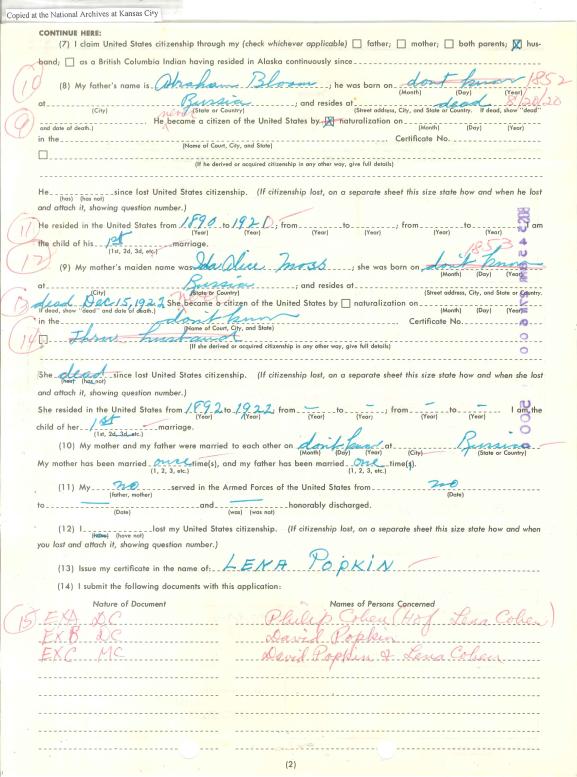 Copied at the National Archives at Kansas City
CONTINUE HERE:
(7) I claim United States citizenship through my (check whichever applicable) ☐ father; ☐ mother; ☐ both parents; ☒ hus-
band; ☐ as a British Columbia Indian having resided in Alaska continuously since
(8) My father's name is Abraham Bloom; he was born on don't know 1852
(Month) (Day) (Year)
at Russia and resides at dead 8/20/20
(City) (State or Country) (Street address, City, and State or Country. If dead, show "dead"
and date of death.) He never became a citizen of the United States by ☒ naturalization on
(Month) (Day) (Year)
in the Certificate No.
(Name of Court, City, and State)
☐
(If he derived or acquired citizenship in any other way, give full details)
He since lost United States citizenship. (If citizenship lost, on a separate sheet this size state how and when he lost
(has) (has not)
and attach it, showing question number.)
He resided in the United States from 1890 to 1921; from to; from to; I am
(Year) (Year) (Year) (Year) (Year) (Year)
the child of his 1st marriage.
(1st, 2d, 3d, etc.)
(9) My mother's maiden name was Ida Alice Moss; she was born on don't know 1853
(Month) (Day) (Year)
at Russia; and resides at
(City) (State or Country) (Street address, City, and State or Country.
dead Dec 15, 1922 She became a citizen of the United States by ☐ naturalization on
If dead, show "dead" and date of death.) (Month) (Day) (Year)
in the don't know Certificate No.
(Name of Court, City, and State)
☐ Thru husband
(If she derived or acquired citizenship in any other way, give full details)
She dead since lost United States citizenship. (If citizenship lost, on a separate sheet this size state how and when she lost
(has) (has not)
and attach it, showing question number.)
She resided in the United States from 1892 to 1922; from – to –; from – to – I am the
(Year) (Year) (Year) (Year) (Year) (Year)
child of her 1st marriage.
(1st, 2d, 3d, etc.)
(10) My mother and my father were married to each other on don't know at Russia
(Month) (Day) (Year) (City) (State or Country)
My mother has been married once time(s), and my father has been married one time(s).
(1, 2, 3, etc.) (1, 2, 3, etc.)
(11) My no served in the Armed Forces of the United States from no
(father, mother) (Date)
to — and — honorably discharged.
(Date) (was) (was not)
(12) I lost my United States citizenship. (If citizenship lost, on a separate sheet this size state how and when
(have) (have not)
you lost and attach it, showing question number.)
(13) Issue my certificate in the name of: LENA POPKIN
(14) I submit the following documents with this application:
Nature of Document Names of Persons Concerned
15 EX A DC Philip Cohen (H of Lena Cohen)
EX B DC David Popkin
EX C MC David Popkin & Lena Cohen
(2)